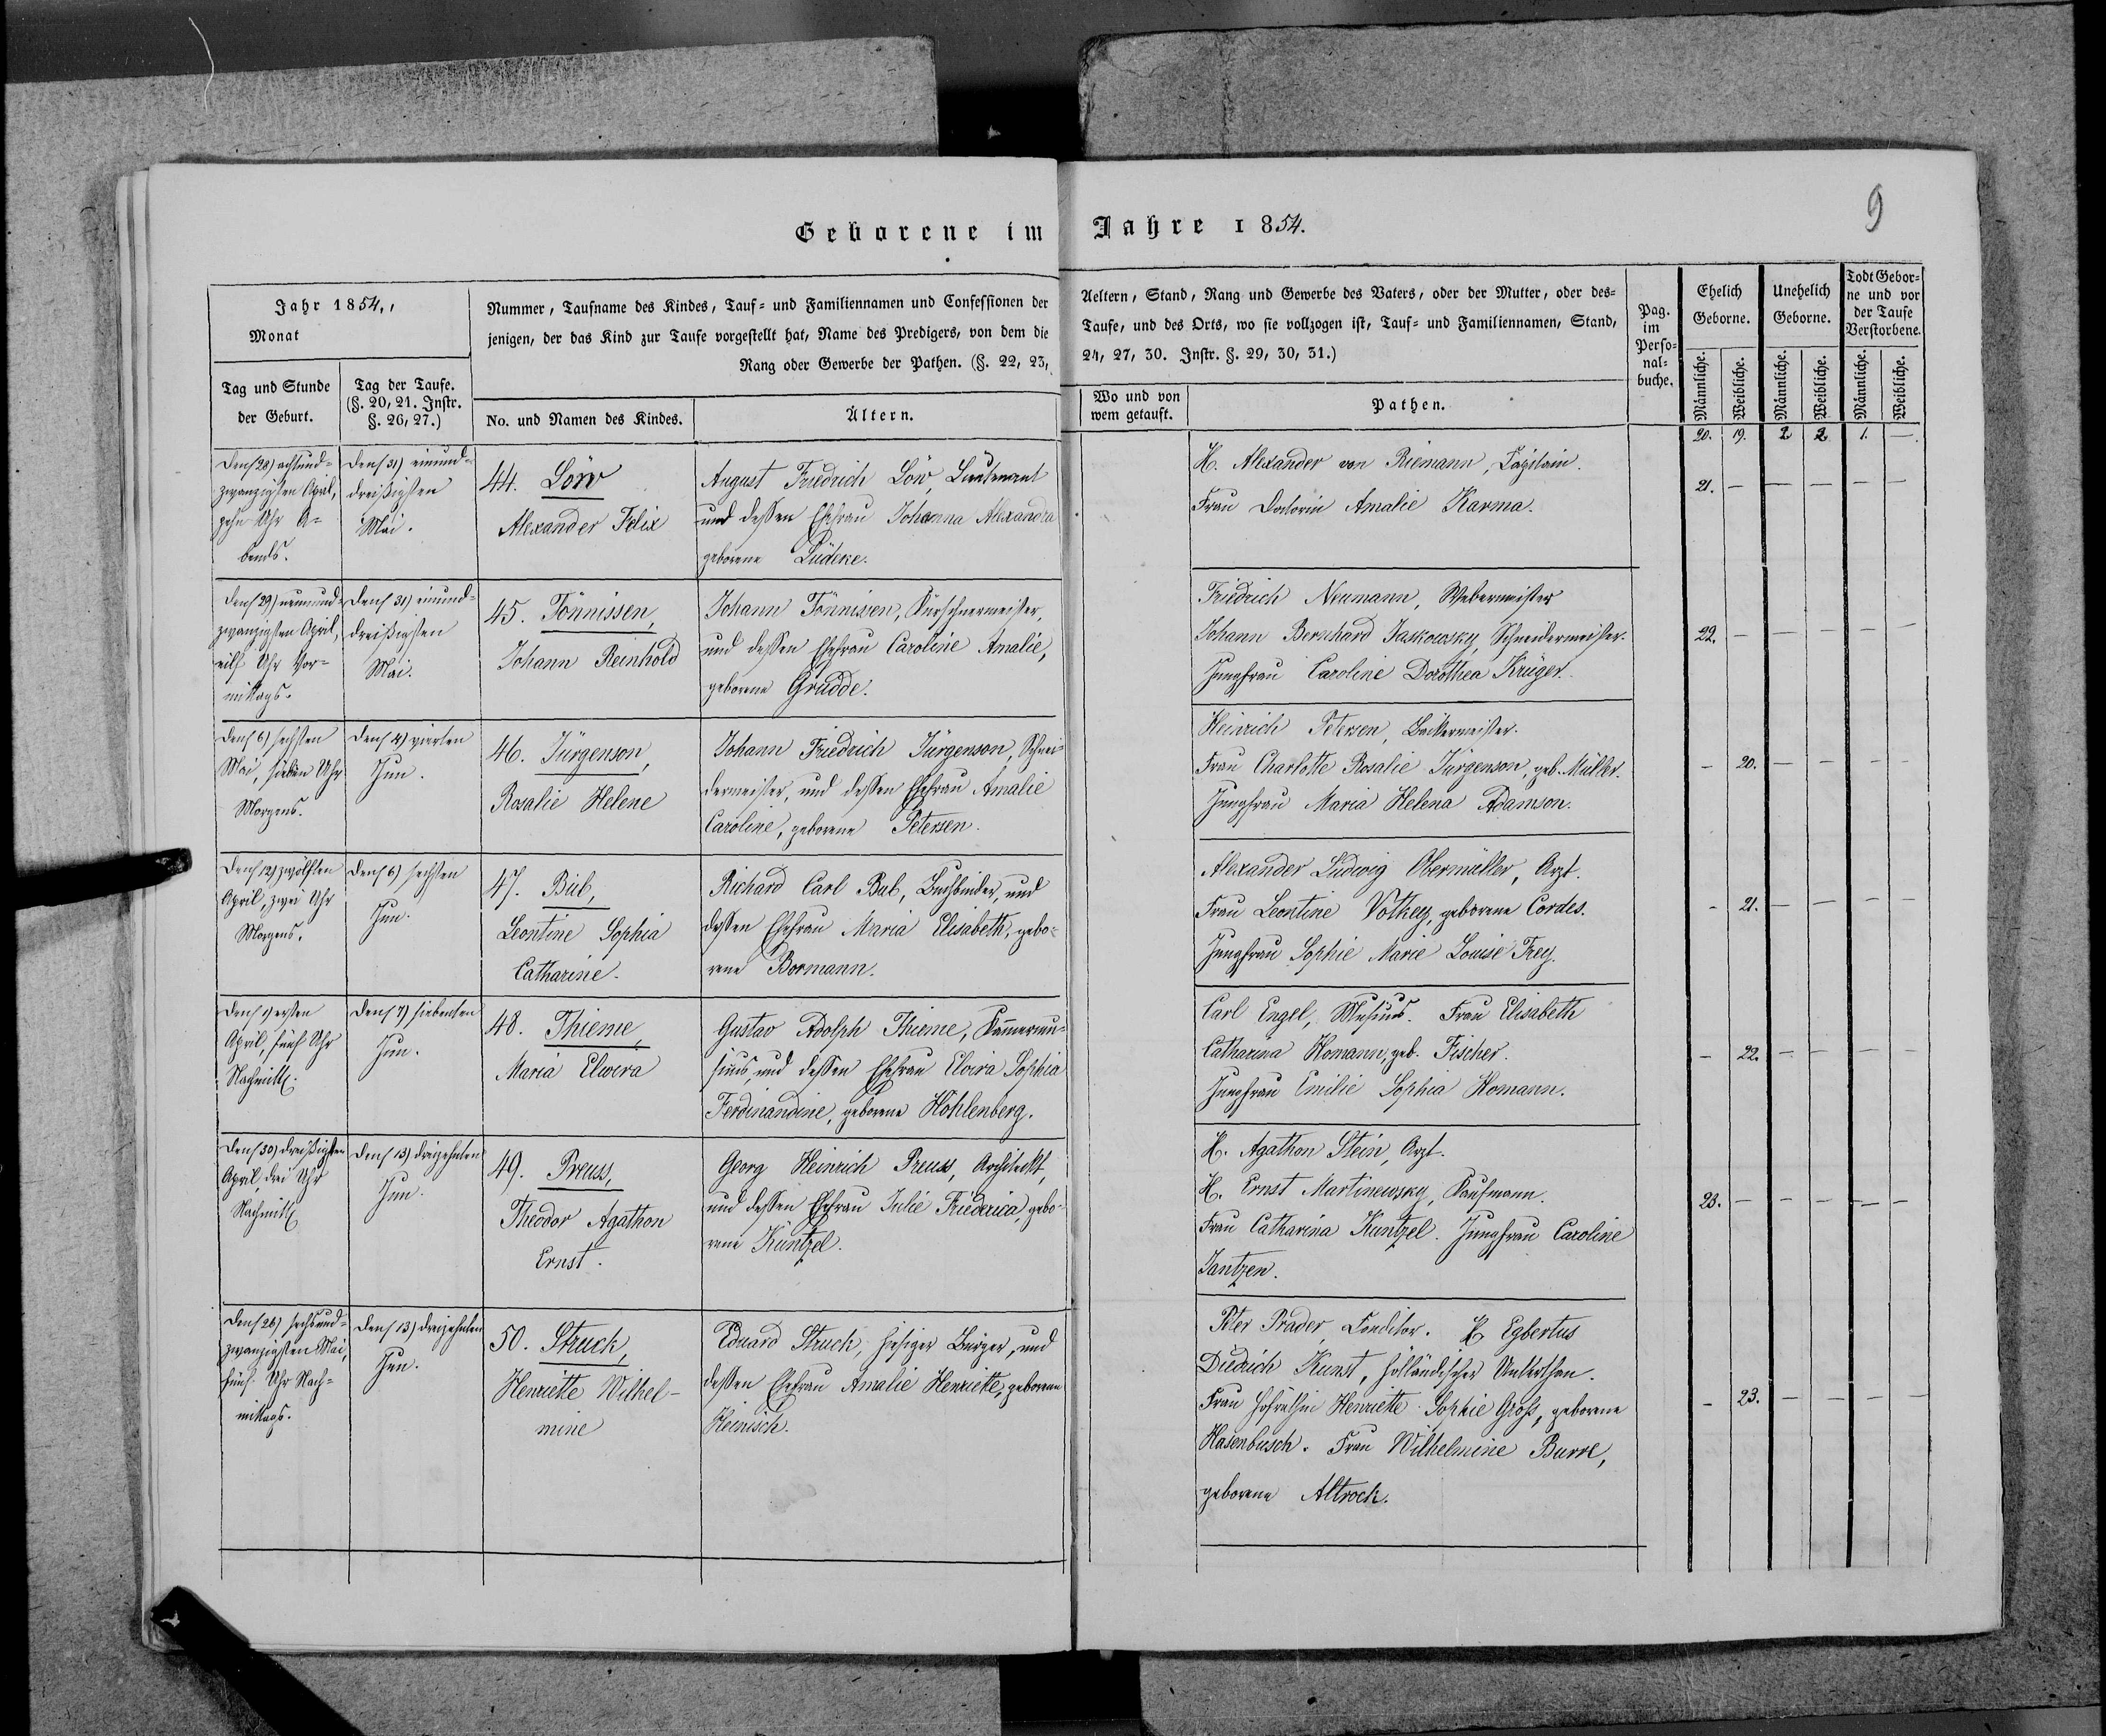 9
Geborene im Jahre 1854.
Jahr 1854.,
Monat
Tag und Stunde
der Geburt.
Tag der Taufe.
(§. 20, 21. Instr.
§. 26, 27.)
Nummer, Taufname des Kindes, Tauf= und Familiennamen und Confessionen der Aeltern, Stand, Rang und Gewerbe des Vaters, oder der Mutter, oder des=
jenigen, der das Kind zur Taufe vorgestellt hat, Name des Predigers, von dem die Taufe, und des Orts, wo sie vollzogen ist, Tauf= und Familiennamen, Stand,
Rang oder Gewerbe der Pathen. (§. 22, 23, 24, 27, 30. Instr. §. 29, 30, 31.)
No. und Namen des Kindes.
Ältern.
Wo und von
wem getauft.
Pathen.
Pag.
im
Perso=
nal=
buche.
Ehelich
Geborne.
Unehelich
Geborne.
Todt Gebor=
ne und vor
der Taufe
Verstorbene.
Männliche.
Weibliche.
Männliche.
Weibliche.
Männliche.
Weibliche.
20. 19. 2 2 1. —.
Den 28) achtund=
zwanzigsten April,
zehn Uhr A=
bends.
Den 31) einund=
dreißigsten
Mai.
44. Löw
Alexander Felix
August Friedrich Löw, Lieutenant
und dessen Ehefrau Johanna Alexandra
geborene Lüdeke.
H. Alexander von Riemann, Capitain.
Frau Amalie Karma.
21. — — — — —
Den 29) neunund=
zwanzigsten April,
eilf Uhr Vor=
mittags.
Den 31) einund=
dreißigsten
Mai.
45. Tönnissen,
Johann Reinhold
Johann Tönnissen, Kürschnermeister,
und dessen Ehefrau Caroline Amalie,
geborene Grudde.
Friedrich Neumann, Webermeister
Johann Bernhard Jaskowsky, Schneidermeister.
Jungfrau Caroline Dorothea Krüger.
22. — — — — —
Den 6) sechsten
Mai, sieben Uhr
Morgens.
Den 4) vierten
Jun.
46. Jürgenson,
Rosalie Helene
Johann Friedrich Jürgenson, Schnei=
dermeister, und dessen Ehefrau Amalie
Caroline, geborene Petersen.
Heinrich Petersen, Bäckermeister.
Frau Charlotte Rosalie Jürgenson, geb. Müller.
Jungfrau Maria Helena Adamson.
— 20. — — — —
Den 12) zwölften
April, zwei Uhr
Morgens.
Den 6) sechsten
Jun.
47. Bub,
Leontine Sophia
Catharine.
Richard Carl Bub, Buchbinder, und
dessen Ehefrau Maria Elisabeth, gebo=
rene Bormann.
Alexander Ludwig Obermüller, Arzt.
Frau Leontine Vothey, geborene Cordes.
Jungfrau Sophie Marie Louise Frey.
— 21. — — — —
Den 1) ersten
April, fünf Uhr
Nachmitt.
Den 7) siebenten
Jun.
48. Thieme,
Maria Elwira
Gustav Adolph Thieme, Kammermu=
sicus, und dessen Ehefrau Elvira Sophia
Ferdinandine, geborene Hohlenberg.
Carl Engel, Musicus. Frau Elisabeth
Catharina Homann, geb. Fischer.
Jungfrau Emilie Sophia Homann.
— 22. — — — —
Den 30) dreißigsten
April, drei Uhr
Nachmitt.
Den 13) dreizehnten
Jun.
49. Preuss,
Theodor Agathon
Ernst.
Georg Heinrich Preuss, Architekt,
und dessen Ehefrau Julie Friederica, gebo=
rene Kuntzel.
H. Agathon Stein, Arzt.
H. Ernst Martinewsky, Kaufmann.
Frau Catharina Kuntzel. Jungfrau Caroline
Jantzen.
23. — — — — —
Den 26) sechsund=
zwanzigsten Mai,
fünf Uhr Nach=
mittags.
Den 13) dreizehnten
Jun.
50. Struck,
Henriette Wilhel-
mine
Eduard Struck, hiesiger Bürger, und
dessen Ehefrau Amalie Henriette, geborene
Heinisch.
Peter Prader, Conditor. H. Egbertus
Diedrich Kunst, holländischer Unterthan.
Frau Hofräthin Henriette Sophie Groß, geborene
Hasenbusch. Frau Wilhelmine Burre,
geborene Altrock.
— 23. — — — —